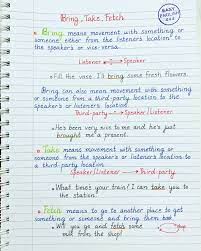 Bring, Take, Fetch
EASY
Bring means movement with something or
someone either from the listener's location to
the speakers or vice-versa.
Listener Speaker
Fill the vase. I'll bring some fresh flowers.
Bring can also mean movement with something
or someone from a third-party location to the
speaker's or listener's location
Third-party Speaker/Listener
He's been very nice to me and he's just
brought me a present.
Take means movement with something or someone
from the speaker's or listener's location to
a third-party location
Speaker/Listener Third-party
What time's your train? I can take you
to the station.
Fetch means to go to another place to get
something or someone and bring them back
Will you go and fetch some
milk from the shop?
shop